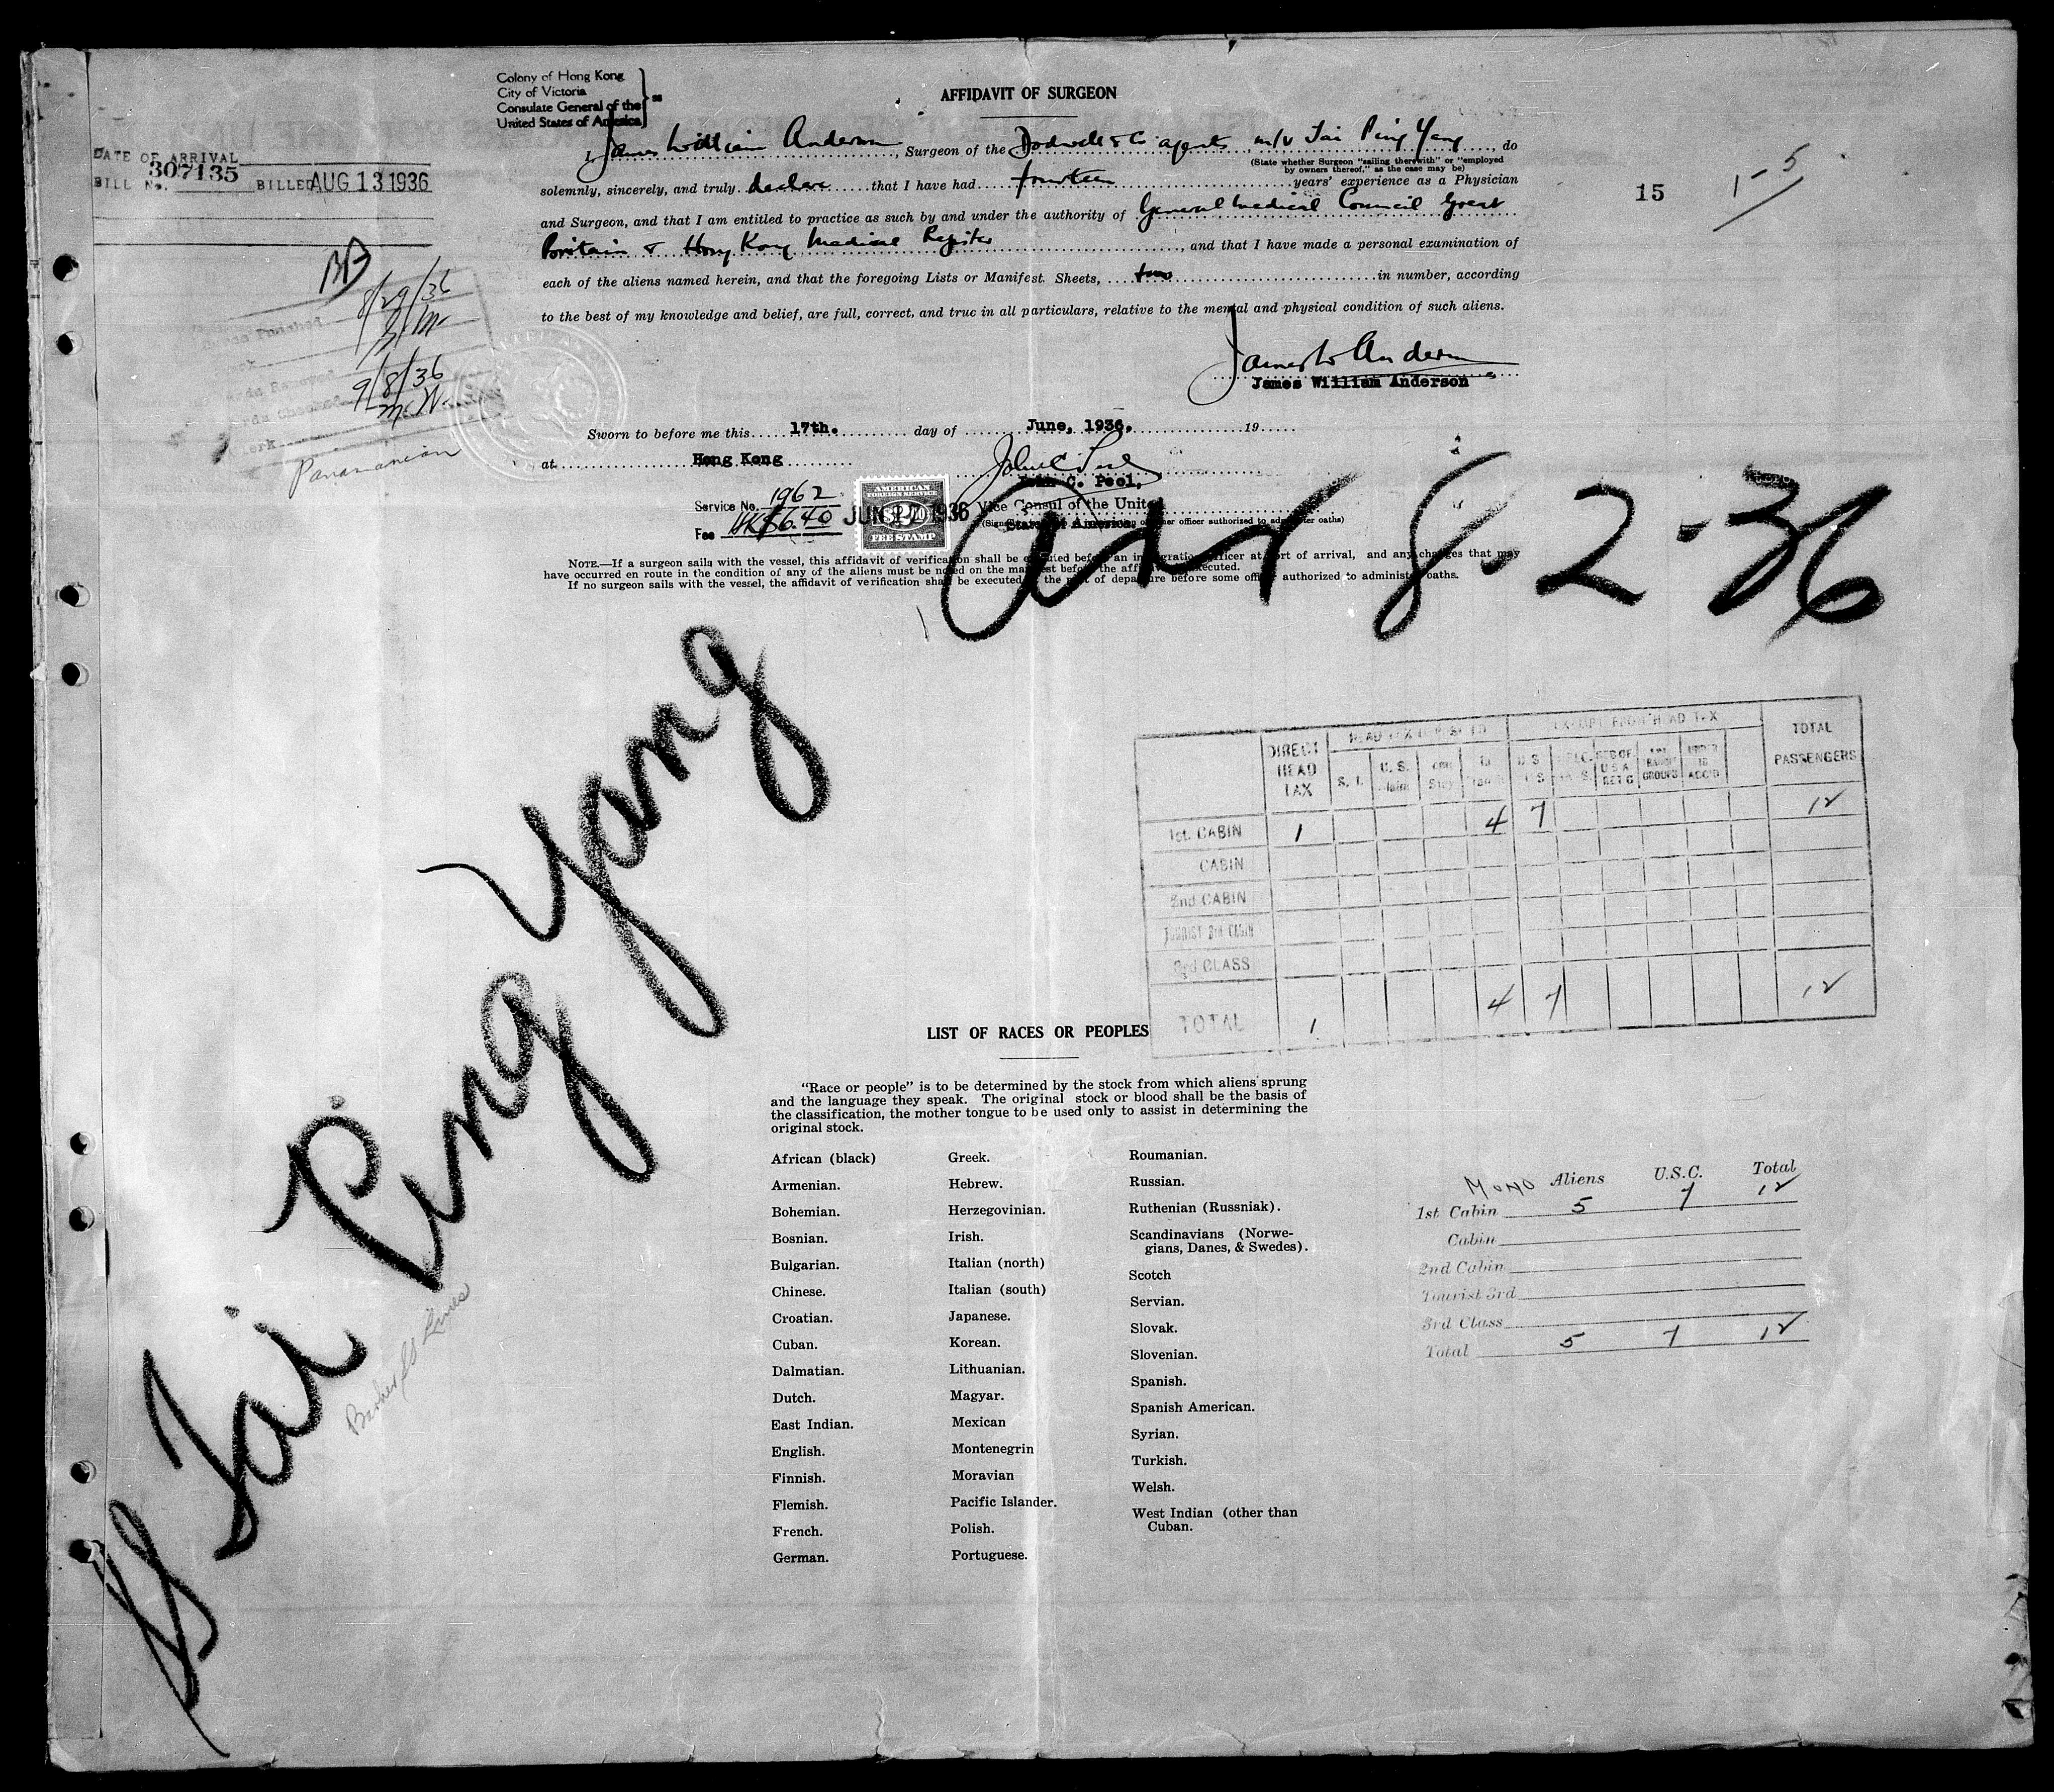 Colony of Hong Kong
City of Victoria
Consulate General of the
United States of America
ss
AFFIDAVIT OF SURGEON
I, James William Anderson, Surgeon of the Dodwell & Co agents m/v Tai Ping Yang, do
(State whether Surgeon "sailing therewith" or "employed
by owners thereof," as the case may be)
solemnly, sincerely, and truly declare that I have had fourteen years' experience as a Physician
and Surgeon, and that I am entitled to practice as such by and under the authority of General Medical Council Great
Britain & Hong Kong Medical Register, and that I have made a personal examination of
each of the aliens named herein, and that the foregoing Lists or Manifest Sheets, two in number, according
to the best of my knowledge and belief, are full, correct, and true in all particulars, relative to the mental and physical condition of such aliens.
James W Anderson
James William Anderson
DATE OF ARRIVAL
BILL No. 307135 BILLED AUG 13 1936
15
1-5
8/29/36
9/8/36
Panamanian
Sworn to before me this 17th. day of June, 1936. 19
at Hong Kong
John C. Pool,
Service No. 1962
Fee HK$6.40
AMERICAN
FOREIGN SERVICE
FEE STAMP
JUN 17 1936
Vice Consul of the United
States of America
other officer authorized to administer oaths)
NOTE.—If a surgeon sails with the vessel, this affidavit of verification shall be executed before an immigration officer at port of arrival, and any changes that may
have occurred en route in the condition of any of the aliens must be noted on the manifest before the affidavit is executed.
If no surgeon sails with the vessel, the affidavit of verification shall be executed at the port of departure before some officer authorized to administer oaths.
Arr 8-2-36
SS Tai Ping Yang
Barber SS Lines
DIRECT HEAD TAX
EXEMPT FROM HEAD TAX
TOTAL PASSENGERS
1st. CABIN 1 4 7 12
CABIN
2nd CABIN
TOURIST 3rd CABIN
3rd CLASS
TOTAL 1 4 7 12
LIST OF RACES OR PEOPLES
"Race or people" is to be determined by the stock from which aliens sprung
and the language they speak. The original stock or blood shall be the basis of
the classification, the mother tongue to be used only to assist in determining the
original stock.
African (black)
Armenian.
Bohemian.
Bosnian.
Bulgarian.
Chinese.
Croatian.
Cuban.
Dalmatian.
Dutch.
East Indian.
English.
Finnish.
Flemish.
French.
German.
Greek.
Hebrew.
Herzegovinian.
Irish.
Italian (north)
Italian (south)
Japanese.
Korean.
Lithuanian.
Magyar.
Mexican
Montenegrin
Moravian
Pacific Islander.
Polish.
Portuguese.
Roumanian.
Russian.
Ruthenian (Russniak).
Scandinavians (Norwe-
gians, Danes, & Swedes).
Scotch
Servian.
Slovak.
Slovenian.
Spanish.
Spanish American.
Syrian.
Turkish.
Welsh.
West Indian (other than
Cuban.
Aliens U.S.C. Total
1st Cabin 5 7 12
Cabin
2nd Cabin
Tourist 3rd
3rd Class
Total 5 7 12